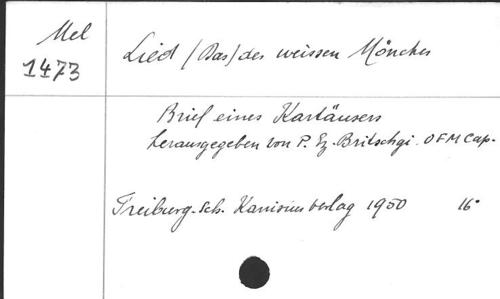 Mel
1473
Lied (Das) des weissen Mönches
Brief eines Kartäusers
herausgegeben von P. Ez. Britschgi. OFMCap.
Freiburg-Sch. Kanisiusverlag 1950 16°